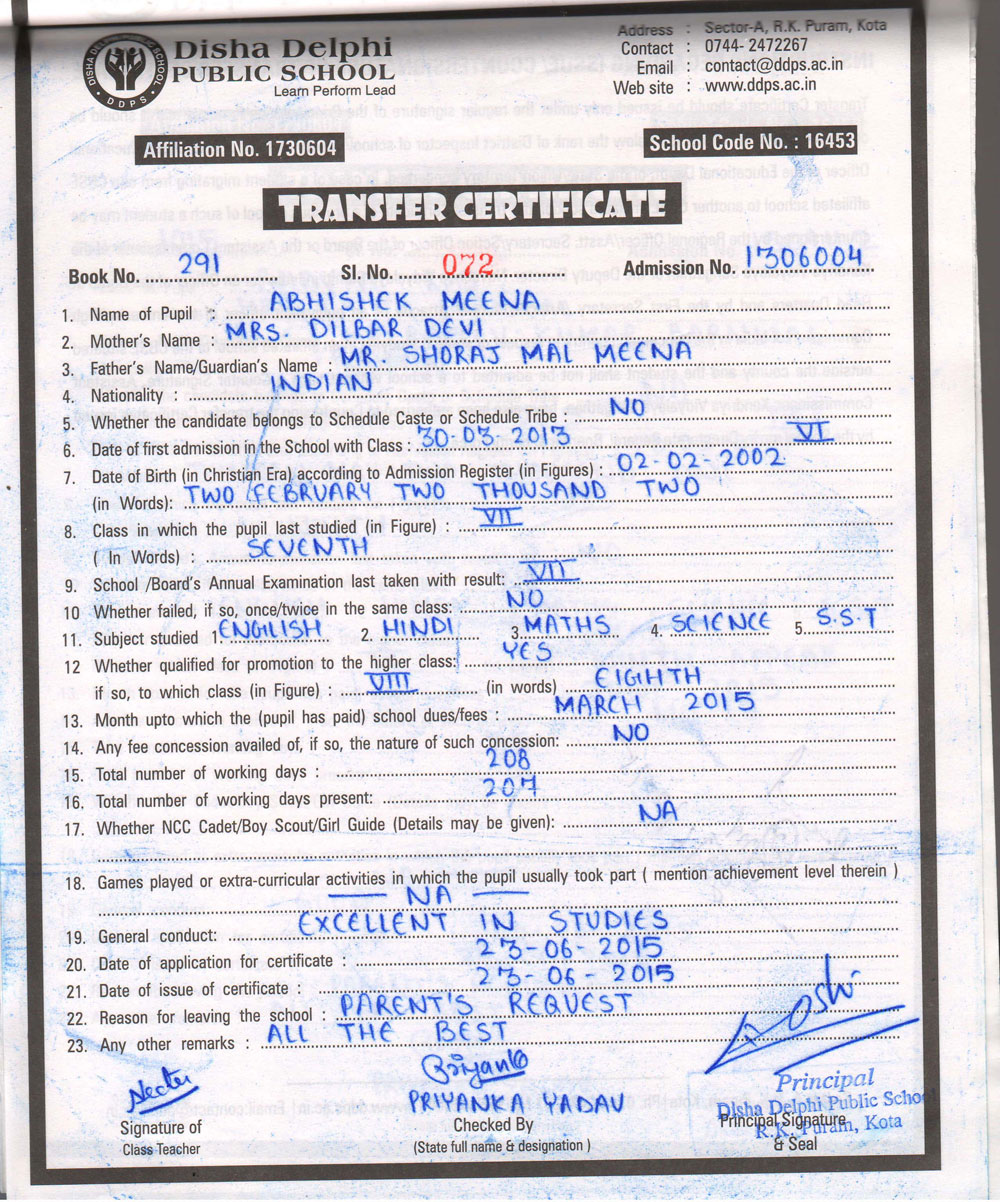 Disha Delphi
PUBLIC SCHOOL
Learn Perform Lead
DISHA DELPHI PUBLIC SCHOOL
DDPS
Address : Sector-A, R.K. Puram, Kota
Contact : 0744- 2472267
Email : contact@ddps.ac.in
Web site : www.ddps.ac.in
Affiliation No. 1730604
School Code No. : 16453
TRANSFER CERTIFICATE
Book No. 291 Sl. No. 072 Admission No. 1306004
1. Name of Pupil : ABHISHEK MEENA
2. Mother's Name : MRS. DILBAR DEVI
3. Father's Name/Guardian's Name : MR. SHORAJ MAL MEENA
4. Nationality : INDIAN
5. Whether the candidate belongs to Schedule Caste or Schedule Tribe : NO
6. Date of first admission in the School with Class : 30-03-2013 VI
7. Date of Birth (in Christian Era) according to Admission Register (in Figures) : 02-02-2002
(in Words): TWO FEBRUARY TWO THOUSAND TWO
8. Class in which the pupil last studied (in Figure) : VII
( In Words) : SEVENTH
9. School /Board's Annual Examination last taken with result: VII
10 Whether failed, if so, once/twice in the same class: NO
11. Subject studied 1. ENGILISH 2. HINDI 3. MATHS 4. SCIENCE 5. S.S.T
12 Whether qualified for promotion to the higher class: YES
if so, to which class (in Figure) : VIII (in words) EIGHTH
13. Month upto which the (pupil has paid) school dues/fees : MARCH 2015
14. Any fee concession availed of, if so, the nature of such concession: NO
15. Total number of working days : 208
16. Total number of working days present: 207
17. Whether NCC Cadet/Boy Scout/Girl Guide (Details may be given): NA
18. Games played or extra-curricular activities in which the pupil usually took part ( mention achievement level therein )
— NA —
19. General conduct: EXCELLENT IN STUDIES
20. Date of application for certificate : 23-06-2015
21. Date of issue of certificate : 23-06-2015
22. Reason for leaving the school : PARENT'S REQUEST
23. Any other remarks : ALL THE BEST
PRIYANKA YADAV
Signature of
Class Teacher
Checked By
(State full name & designation )
Principal Signature
& Seal
Principal
Disha Delphi Public School
R.K. Puram, Kota